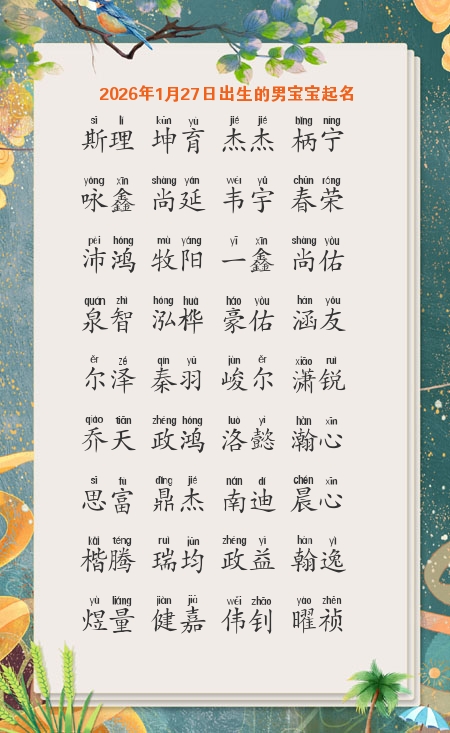 2026年1月27日出生的男宝宝起名
sī lǐ kūn yù jié jié bǐng níng
斯理 坤育 杰杰 柄宁
yǒng xīn shàng yán wéi yǔ chūn róng
咏鑫 尚延 韦宇 春荣
pèi hóng mù yáng yī xīn shàng yòu
沛鸿 牧阳 一鑫 尚佑
quán zhì hóng huà háo yòu hán yǒu
泉智 泓桦 豪佑 涵友
ěr zé qín yǔ jùn ěr xiāo ruì
尔泽 秦羽 峻尔 潇锐
qiáo tiān zhèng hóng luò yì hàn xīn
乔天 政鸿 洛懿 瀚心
sī fù dǐng jié nán dí chén xīn
思富 鼎杰 南迪 晨心
kǎi téng ruì jūn zhèng yì hàn yì
楷腾 瑞均 政益 翰逸
yù liáng jiàn jiā wěi zhāo yào zhēn
煜量 健嘉 伟钊 曜祯